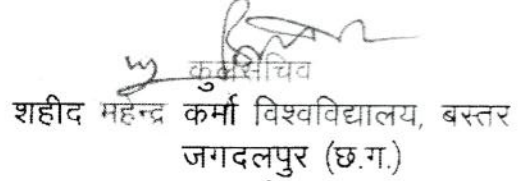 कुलसचिव
शहीद महेन्द्र कर्मा विश्वविद्यालय, बस्तर
जगदलपुर (छ.ग.)